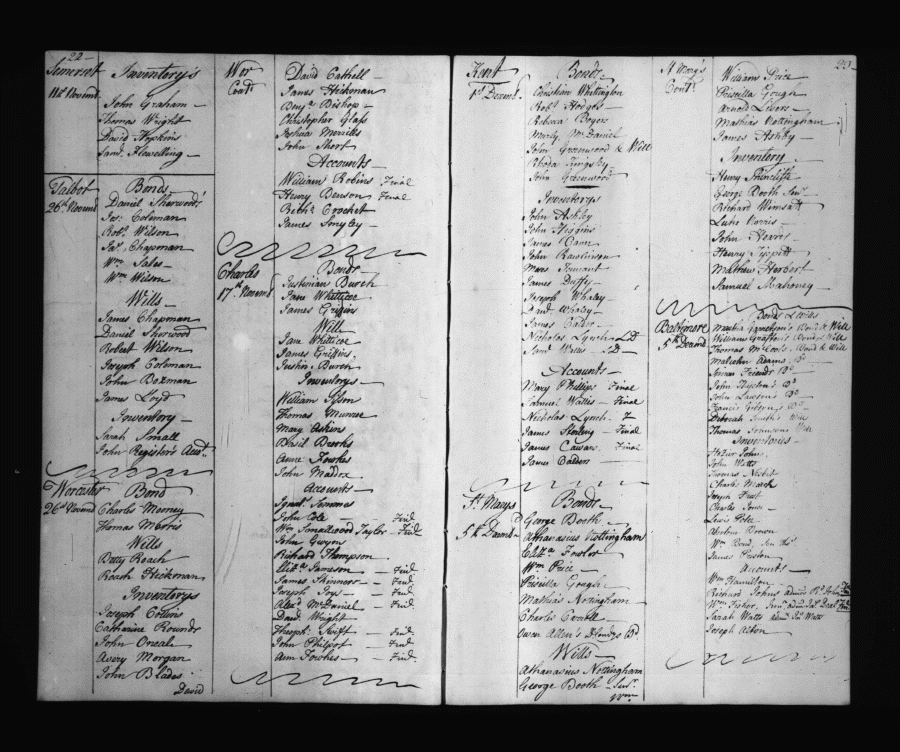 22
Somerset
11th Novemd
Inventory's
John Graham
Thomas Wright
David Hopkins
Saml Flewelling
Talbot
26th Novemd
Bonds
Daniel Sherwood
Jos: Coleman
Robt Wilson
Jas Chapman
Wm Sales
Wm Wilson
Wills
James Chapman
Daniel Sherwood
Robert Wilson
Joseph Coleman
John Bozman
James Loyd
Inventory
Sarah Small
John Register's
Worcester
26th Novemd
Bond
Charles Mooney
Thomas Morris
Wills
Betty Roach
Roach Hickman
Inventorys
Joseph Collins
Catharine Rounds
John Oneal
Avery Morgan
John Blades
David
Wor
Contd
David Cathell
James Hickman
Benja Bishop
Christopher Glass
Joshua Merrills
John Short
Accounts
William Robins Final
Henry Benson Final
Beths Crocket
James Longley
Charles
17th Novemd
Bonds
Justinian Burch
Jane Whitticoe
James Griffins
Will
Jane Whitticoe
James Griffins
Justin Burch
Inventorys
William Ison
Thomas Munroe
Mary Askins
Basil Brooks
Anne Fowkes
John Maddox
Accounts
Ignats Semmes
John Cole Finl
Wm Smallwood Taylor Finl
John Gwyon
Richard Thompson
Elizth Jameson Finl
James Skinner Finl
Joseph Joy Finl
Alexd McDaniel Finl
David Wright
Theoph: Swift Finl
John Philpot Finl
Ann Fowkes Finl
Kent
1st Decemd
Bonds
Christian Whittington
Robt Hodges
Rebecca Boyers
McDaniel
John Greenwood & Will
Rhoda Kingsby
John Greenwood
Inventorys
John Ashby
John Higgins
James
John Rawlinson
Moses Tennant
James Duffy
Joseph Whaley
James
Nicholas Lynch LD
Saml Wallis D
Accounts
Mary Phillips Final
Samuel Wallis Final
Nicholas Lynch F
James Sterling Final
James Cawsar Final
James Calder
St Marys
5th Decemd
Bonds
George Booth
Athanasius Nottingham
Elizth Fowler
Wm Price
Priscilla Gough
Mathias Nottingham
Charles
Owen Allen's Bond
Wills
Athanasius Nottingham
George Booth Senr
Wm
St Mary's
Contd
23
William Price
Priscilla Gough
Arnold Livers
Mathias Nottingham
James Ashby
Inventory
Henry
George Booth Senr
Richard Wimsatt
Luke Norris
John Norris
Henry Tippett
Mathew Herbert
Samuel Mahoney
Baltimore
5th Decemd
Bonds & Wills
Bond & Will
William Bond & Will
Thomas Bond & Will
Malcolm Adams Do
John Do
John Lawson Do
Francis Do
Deborah Smith's Will
Thomas Johnson's Will
Inventories
John Watts
Thomas Nesbit
Charles
Joseph
Charles Jones
Lewis
Brown
Wm Bond
James Preston
Accounts
Wm Hamilton
Richard Johns
Wm Fisher
Sarah Watts
Joseph Aston